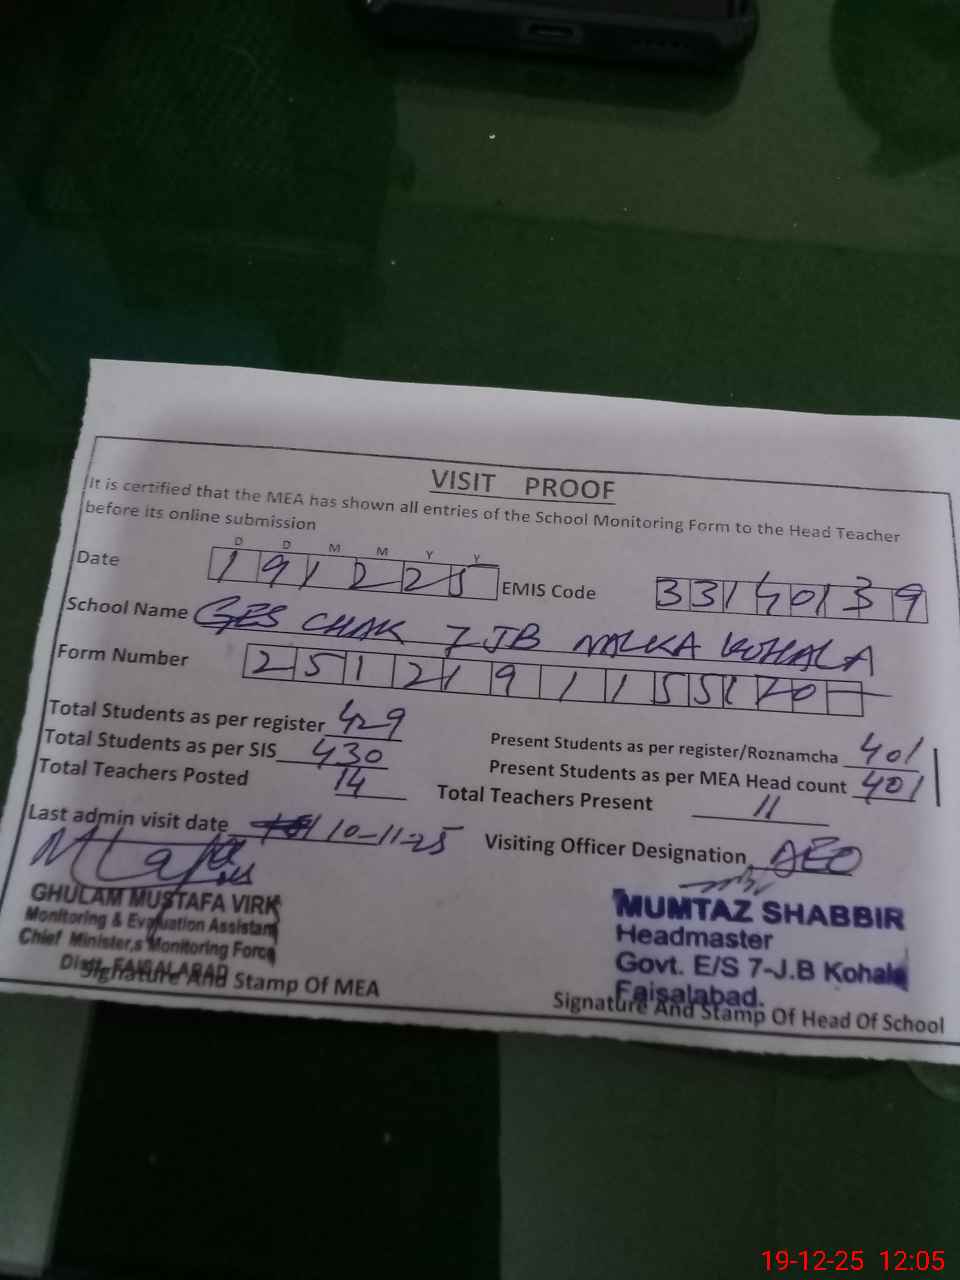 VISIT PROOF
It is certified that the MEA has shown all entries of the School Monitoring Form to the Head Teacher
before its online submission
D D M M Y Y
Date 191225 EMIS Code 33140139
School Name GES CHAK 7 JB MALKA KOHALA
Form Number 2512191155170
Total Students as per register 429 Present Students as per register/Roznamcha 401
Total Students as per SIS 430 Present Students as per MEA Head count 401
Total Teachers Posted 14 Total Teachers Present 11
Last admin visit date 10-11-25 Visiting Officer Designation AEO
GHULAM MUSTAFA VIRK
Monitoring & Evaluation Assistant
Chief Minister,s Monitoring Force
Distt. FAISALABAD
Signature And Stamp Of MEA
MUMTAZ SHABBIR
Headmaster
Govt. E/S 7-J.B Kohala
Faisalabad.
Signature And Stamp Of Head Of School
19-12-25 12:05